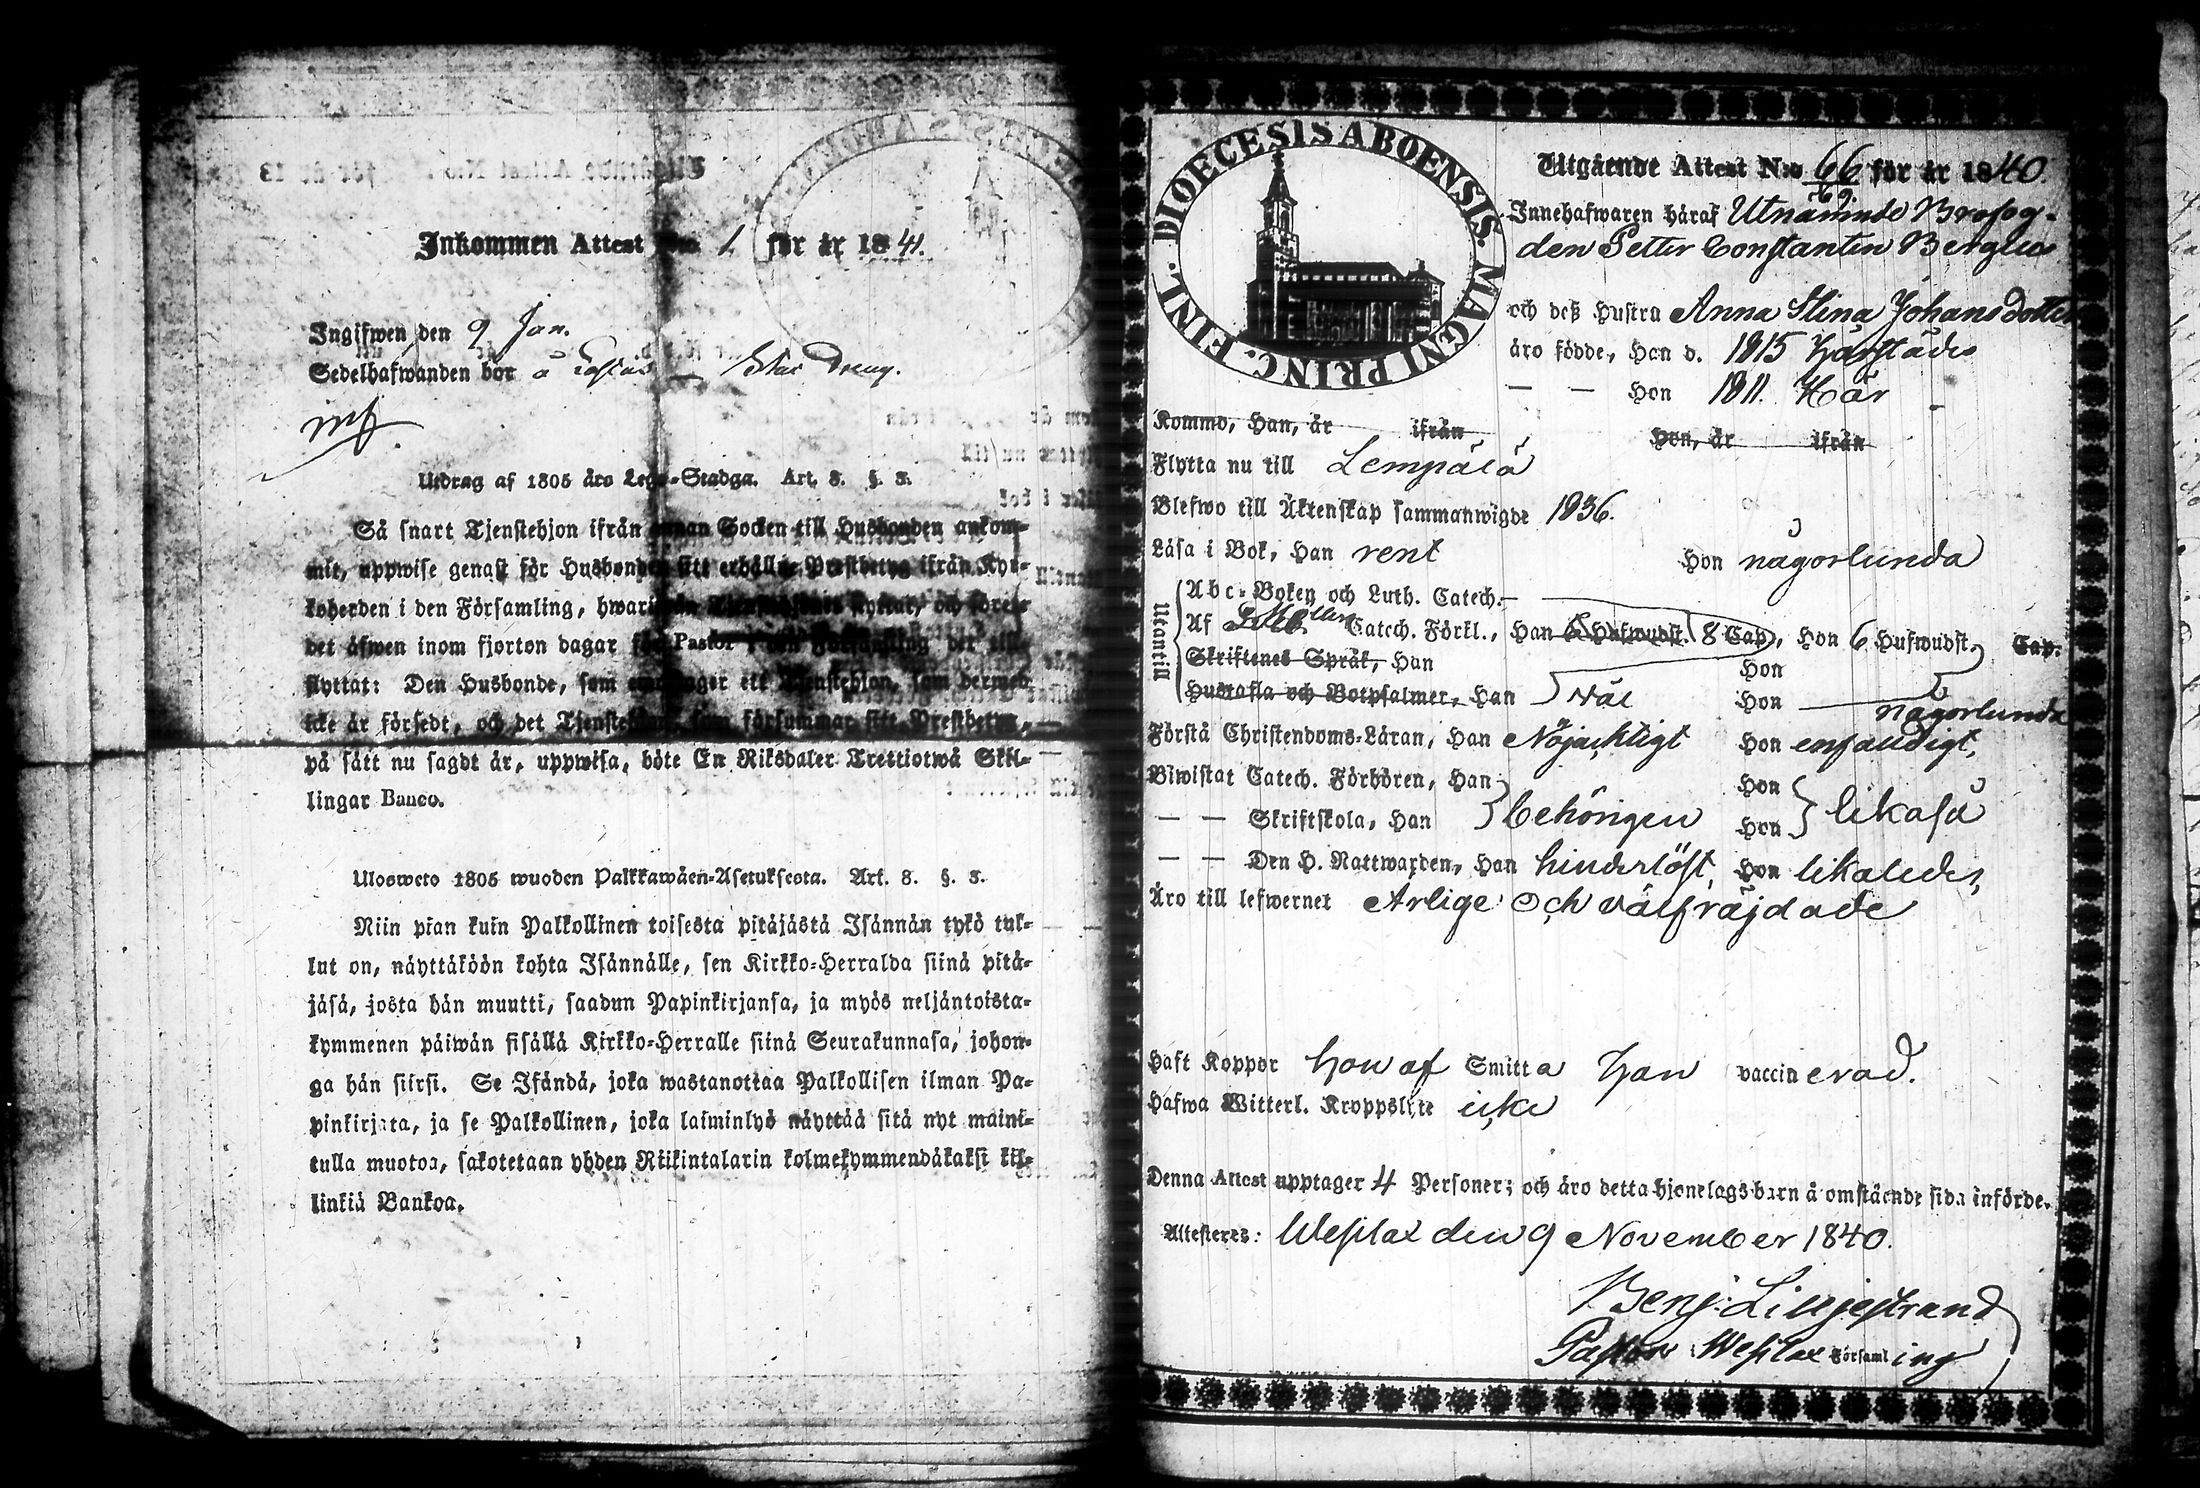 Inkommen Attest N:o 1 för år 1841.
Ingifwen den 9 Jan.
Sedelhafwanden bor å
Utdrag af 1805 års Lego-Stadga. Art. 8. §. 3.
Så snart Tjenstehjon ifrån annan Socken till Husbonden ankom-
mit, uppwise genast för Husbonden sitt erhållne Prestbetyg ifrån Kyr-
koherden i den Församling, hwarifrån Tjenstehjonet flyttat, och förete
det äfwen inom fjorton dagar för Pastor i den Församling der till-
flyttat: Den Husbonde, som emottager ett Tjenstehjon, som dermed
icke är försedt, och det Tjenstehjon, som försummar sitt Prestbetyg,
på sätt nu sagdt är, uppwisa, böte En Riksdaler Trettiotwå Skil-
lingar Banco.
Ulosweto 1805 wuoden Palkkawäen-Asetuksesta. Art. 8. §. 3.
Niin pian kuin Palkollinen toisesta pitäjästä Isännän tykö tul-
lut on, näyttäköön kohta Isännälle, sen Kirkko-Herralda siinä pitä-
jäsä, josta hän muutti, saadun Papinkirjansa, ja myös neljäntoista-
kymmenen päiwän sisällä Kirkko-Herralle siinä Seurakunnasa, johon-
ga hän siirsi. Se Isändä, joka wastanottaa Palkollisen ilman Pa-
pinkirjata, ja se Palkollinen, joka laiminlyö näyttää sitä nyt maini-
tulla muotoa, sakotetaan yhden Riikintalarin kolmekymmendäkaksi kil-
linkiä Bankoa.
DIOECESIS ABOENSIS. MAGNI PRINC. FINL.
Utgående Attest N:o 66 för år 1840.
69.
Innehafwaren häraf Utnämnde Brofog-
den Petter Constantin Berglu
och deß Hustru Anna Stina Johansdotter
äro födde, Han d. 1815 Härstädes
— — Hon 1811. Här
Kommo, Han, år ifrån Hon, år ifrån
Flytta nu till Lempälä
Blefwo till Äktenskap sammanwigde 1836.
Läsa i Bok, Han rent Hon någorlunda
Utantill
Abc-Boken och Luth. Catech.
Af Catech. Förkl., Han 6 Hufwudst. 8 Cap, Hon 6 Hufwudst. Cap.
Skriftenes Språk, Han Hon
Hustafla och Botpsalmer, Han väl Hon någorlunda
Förstå Christendoms-Läran, Han Nöjachtigt Hon enfaldigt,
Biwistat Catech. Förhören, Han Hon
— — Skriftskola, Han behörigen Hon likaså
— — Den H. Nattwarden, Han hinderlöst, Hon likaledes,
Äro till lefwernet Ärlige och välfräjdade
Haft Koppor hon af Smitta Han vaccinerad.
Hafwa Witterl. Kroppslyte icke
Denna Attest upptager 4 Personer; och äro detta hjonelags barn å omstående sida införde.
Attesteres: Westlax den 9 November 1840.
Benj: Liljestrand
Pastor i Westlax Församling